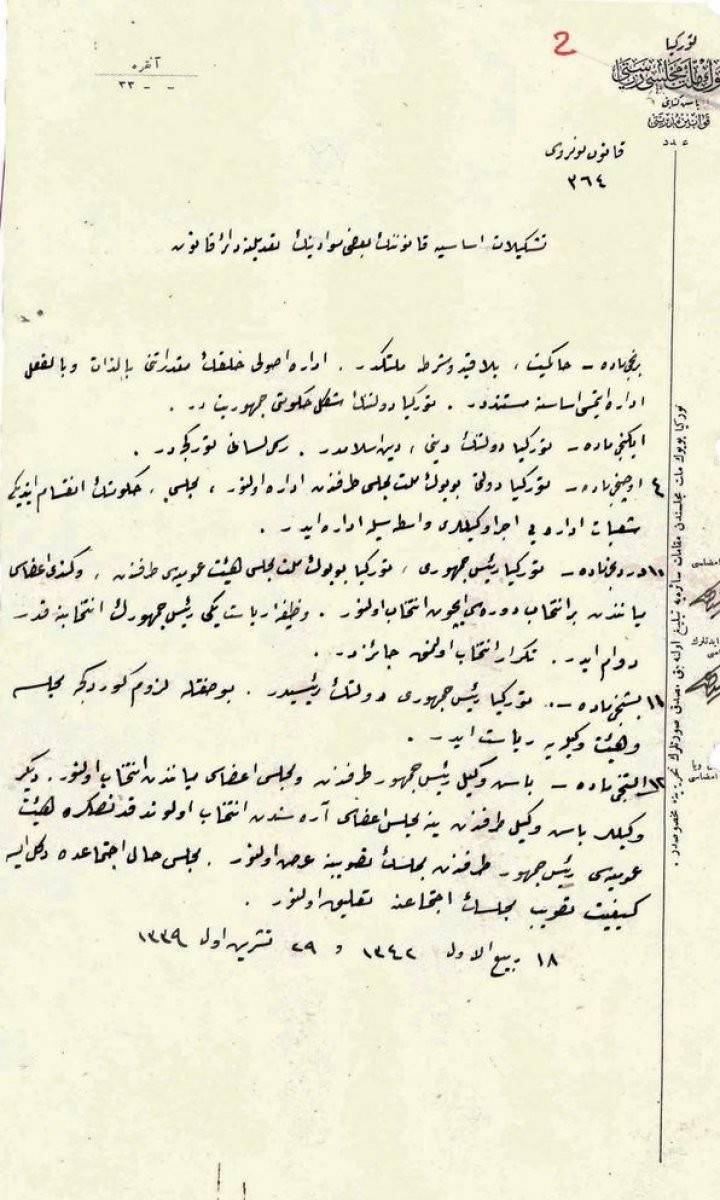 2
توركيا
بيوك ملت مجلسى رياستى
باش كتابتى
قوانين مديريتى
عدد
آنقره
٣٣ - -
قانون نومروسى
٣٦٤
تشكيلات اساسيه قانوننك بعضى موادينك تعديلنه دائر قانون
برنجى ماده – حاكميت ، بلا قيد و شرط ملتكدر . اداره اصولى خلقك مقدراتنى بالذات و بالفعل
اداره ايتمسى اساسنه مستنددر . توركيا دولتنك شكل حكومتى جمهوريت در .
ايكنجى ماده – توركيا دولتنك دينى ، دين اسلامدر . رسمى لسانى توركجه در .
٤ اوچنجى ماده – توركيا دولتى بويوك ملت مجلسى طرفندن اداره اولنور ، مجلس ، حكومتك انقسام ايتديكى
شعبات اداره يى اجرا وكيللرى واسطه سيله اداره ايدر .
١٠ دردنجى ماده – توركيا رئيس جمهورى ، توركيا بويوك ملت مجلسى هيئت عموميه سى طرفندن ، و كندى اعضاسى
ميانندن بر انتخاب دوره سى ايچون انتخاب اولنور . وظيفه رياست يكى رئيس جمهورك انتخابنه قدر
دوام ايدر . تكرار انتخاب اولنمق جائزدر .
١١ بشنجى ماده – توركيا رئيس جمهورى دولتك رئيسيدر . بو صفتله لزوم كوردكجه مجلسه
و هيئت وكيليه رياست ايدر .
١٢ التنجى ماده – باش وكيل رئيس جمهور طرفندن و مجلس اعضاسى ميانندن انتخاب اولنور . ديكر
وكيللر باش وكيل طرفندن ينه مجلس اعضاسى آره سندن انتخاب اولوندقدنصكره هيئت
عموميه سى رئيس جمهور طرفندن مجلسك تصويبنه عرض اولنور . مجلس حال اجتماعده دكل ايسه
كيفيت تصويب مجلسك اجتماعنه تعليق اولنور .
١٨ ربيع الاول ١٣٤٢ و ٢٩ تشرين اول ١٣٣٩
توركيا بويوك ملت مجلسندن مقامات سائره يه تبليغ اولنه جق مصدق صورتلرك تحريرينه مخصوصدر .
امضاسى
امضاسى